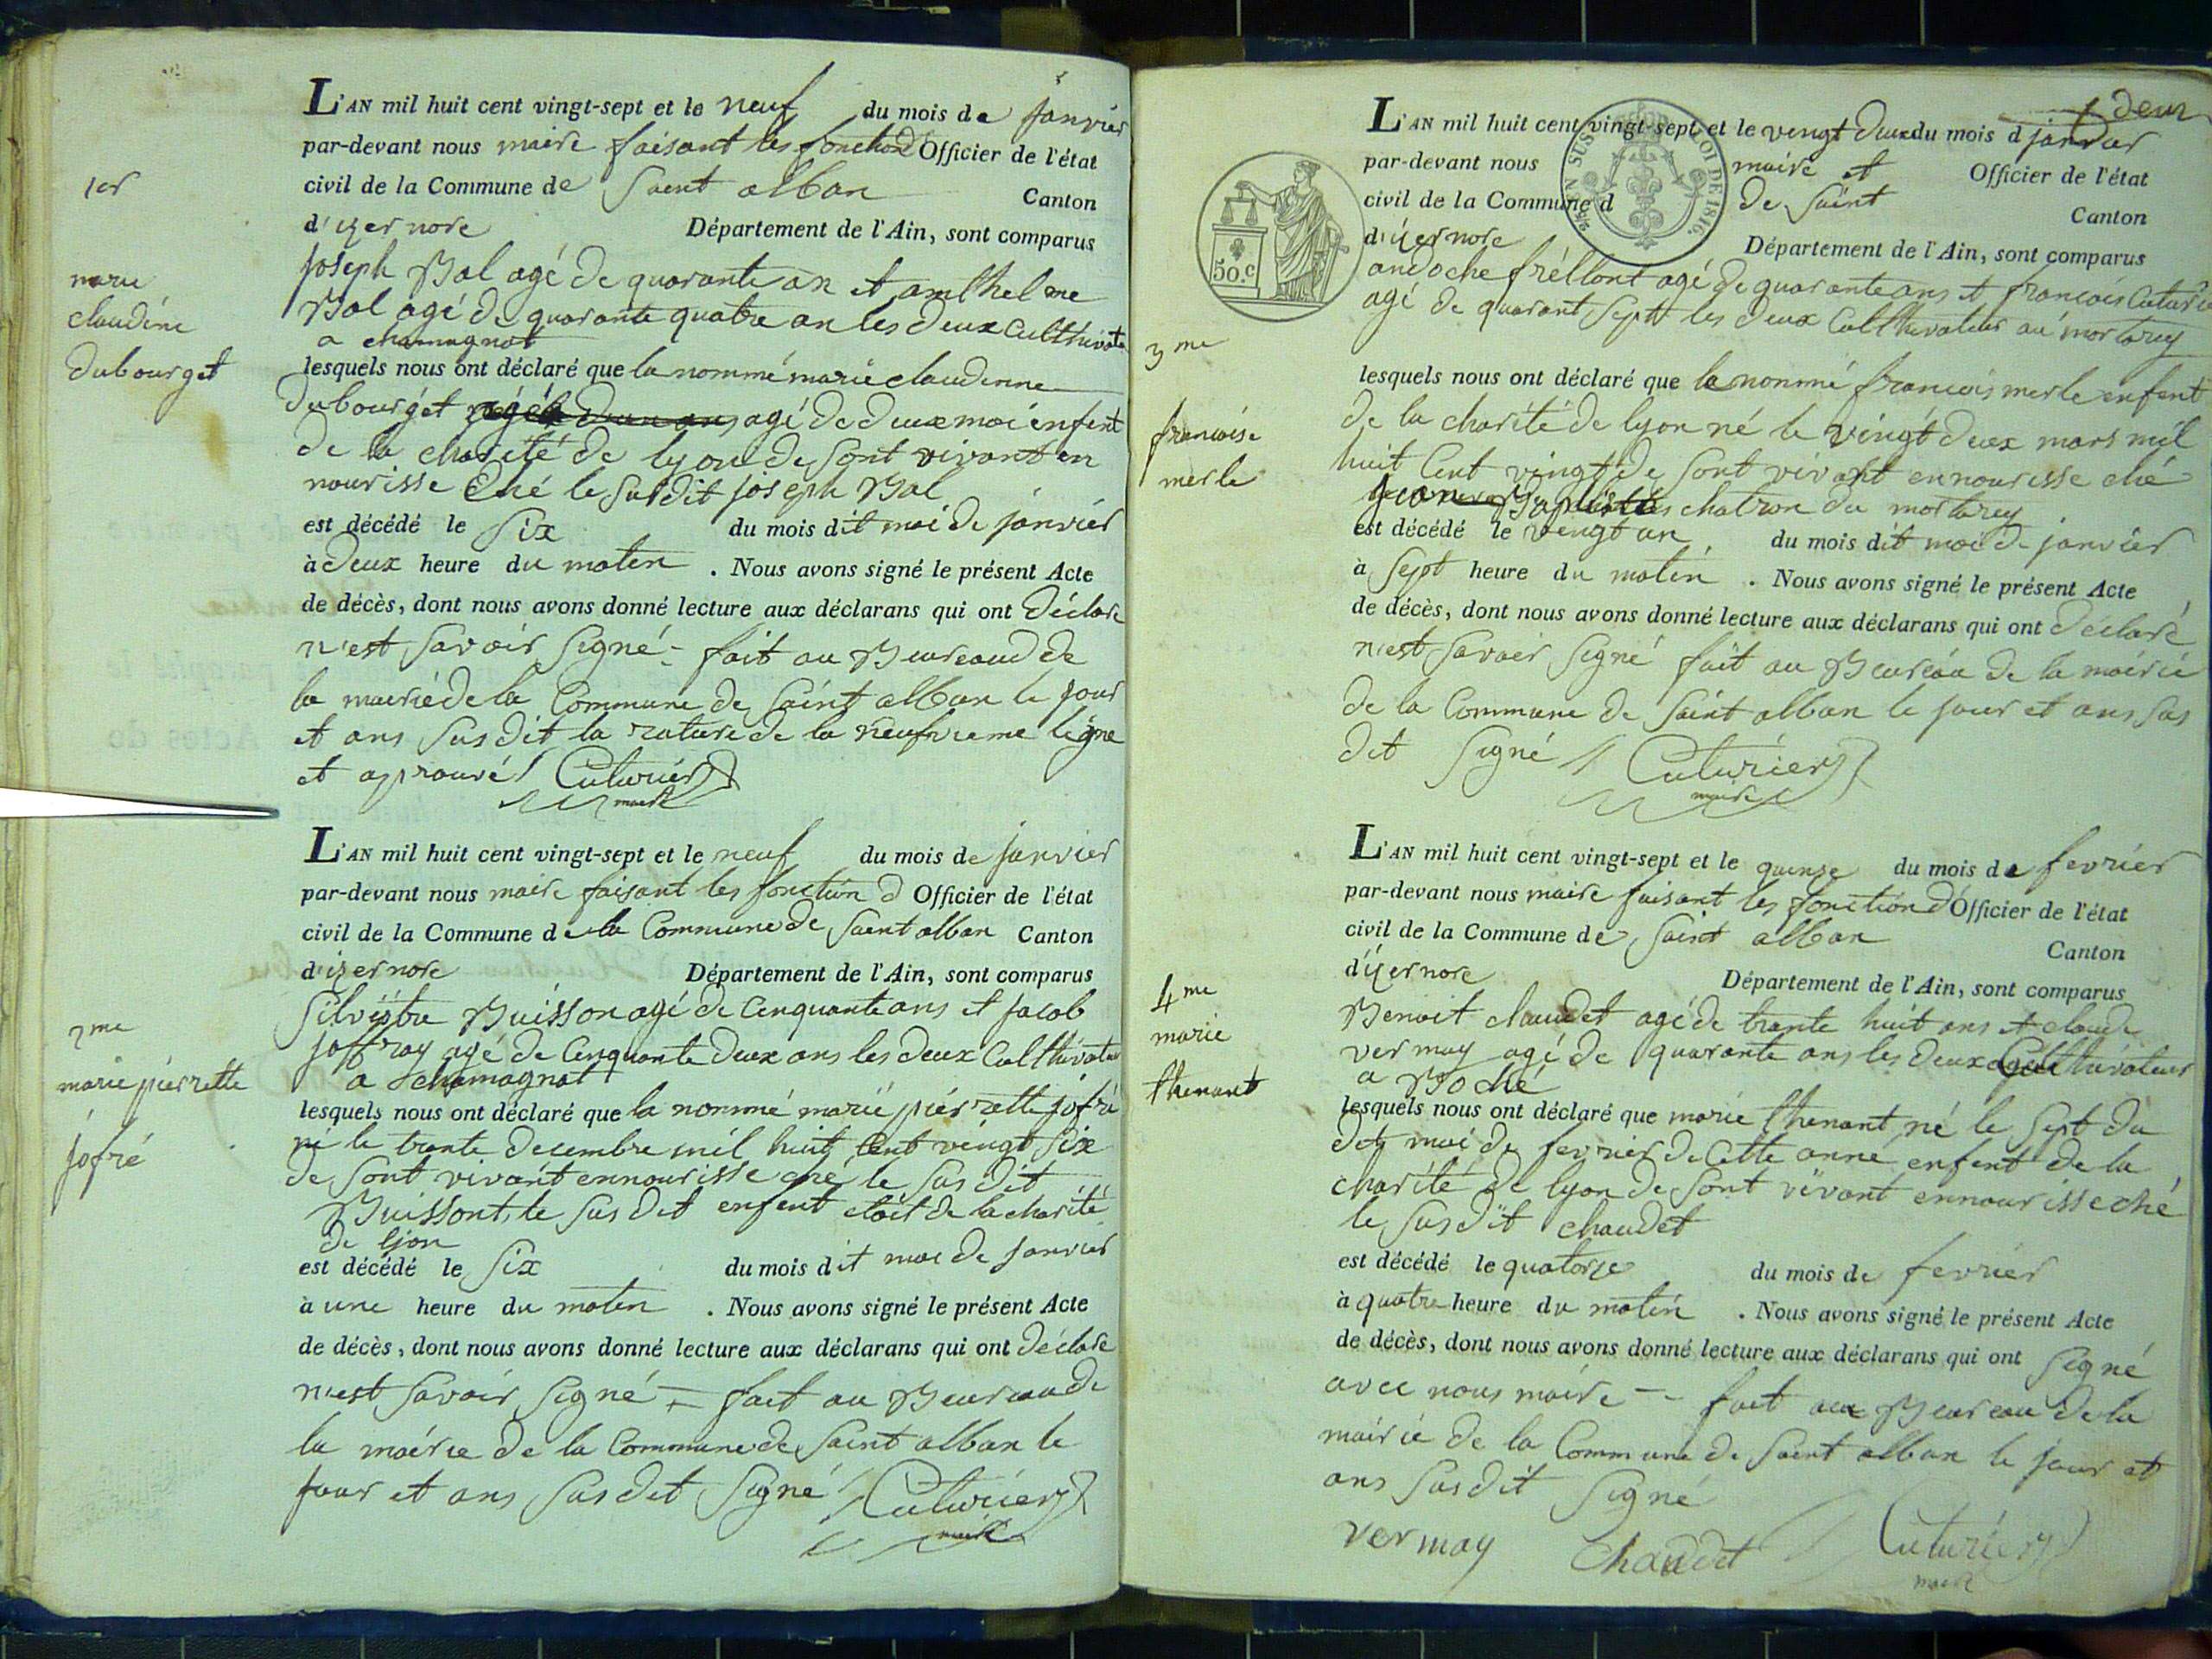 1er
marie
claudine
dubourget
L'AN mil huit cent vingt-sept et le neuf du mois de janvier
par-devant nous maire faisant les fonction d Officier de l'état
civil de la Commune de Saent alban Canton
d'izernore Département de l'Ain, sont comparus
Joseph Bal agé de quarante an et amthelme
Bal agé de quarante quatre an les deux Culthivate
a chamagnat
lesquels nous ont déclaré que la nommé marie claudinne
dubourgét agé de deux moi énfent
de la charité de lyon de sont vivant en
nourisse Ché le susdit joseph Bal
est décédé le six du mois dit moi de janvier
à deux heure du maten . Nous avons signé le présent Acte
de décès, dont nous avons donné lecture aux déclarans qui ont déclare
n'est savoir signé - fait au Beureaud de
la mairié de la Commune de Saint alban le jour
et ans susdit la rature de la neufvieme ligne
et aprouvé Cuturier
maire
2me
marie pierrette
jofré
L'AN mil huit cent vingt-sept et le neuf du mois de janvier
par-devant nous maire faisant les fonction d Officier de l'état
civil de la Commune de la Commune de Saent alban Canton
d'izernore Département de l'Ain, sont comparus
Silvestre Buisson agé de Cenquante ans et jacob
joffray agé de Cenquante deux ans les deux Culthivateu
a chamagnat
lesquels nous ont déclaré que la nommé marie piérrette jofré
né le trente decembre mil huit Cent vingt six
de sont vivant ennourisse ché le sus dit
Buissont, le sus det enfent étoit de la charité
de lyon
est décédé le six du mois dit moi de janvier
à une heure du maten . Nous avons signé le présent Acte
de décès, dont nous avons donné lecture aux déclarans qui ont déclare
n'est savoir signé - fait au Beureau de
la mairie de la Commune de Saint alban le
jour et ans sus det signé Cuturier
maire
deux
L'AN mil huit cent vingt-sept et le vengt deux du mois d janvier
par-devant nous maire et Officier de l'état
civil de la Commune d de Saint Canton
d'izernore Département de l'Ain, sont comparus
LOI DE 1816.
50.c
andoche fréllont agé de quarante ans et françois Cuturie
agé de quarant sept les deux Culthivateur au mortarey
3me
francoise
merle
lesquels nous ont déclaré que le nommé francois merle enfent
de la charité de lyon né le vingt deux mars mil
huit Cent vingt de sont vivant en nourisse ché
Baptiste chatron du mortarey
est décédé le vengt un du mois dit moi de janvier
à Sept heure du matin . Nous avons signé le présent Acte
de décès, dont nous avons donné lecture aux déclarans qui ont déclaré
n'est savoir signé fait au Beureau de la mairié
de la Commune de Saint alban le jour et ans sus
det signé Cuturier
maire
4me
marie
thenant
L'AN mil huit cent vingt-sept et le quenze du mois de fevrier
par-devant nous maire faisant les fonction d Officier de l'état
civil de la Commune de Saint alban Canton
d'izernore Département de l'Ain, sont comparus
Benoit chaudet agé de trante huit ans et claude
vermay agé de quarante ans les deux Culthivateur
a Boché
lesquels nous ont déclaré que marie thenant né le Sept du
det moi de fevrier de Cette anné enfent de la
charité de lyon de sont vivant ennourisse ché
le susdit chaudet
est décédé le quatorze du mois de fevriér
à quatre heure du matin . Nous avons signé le présent Acte
de décès, dont nous avons donné lecture aux déclarans qui ont signé
avec nous maire - fait au Beureau de la
mairie de la Commune de Saent alban le jour et
ans susdit signé
vermay Chaudet Cuturier
maire